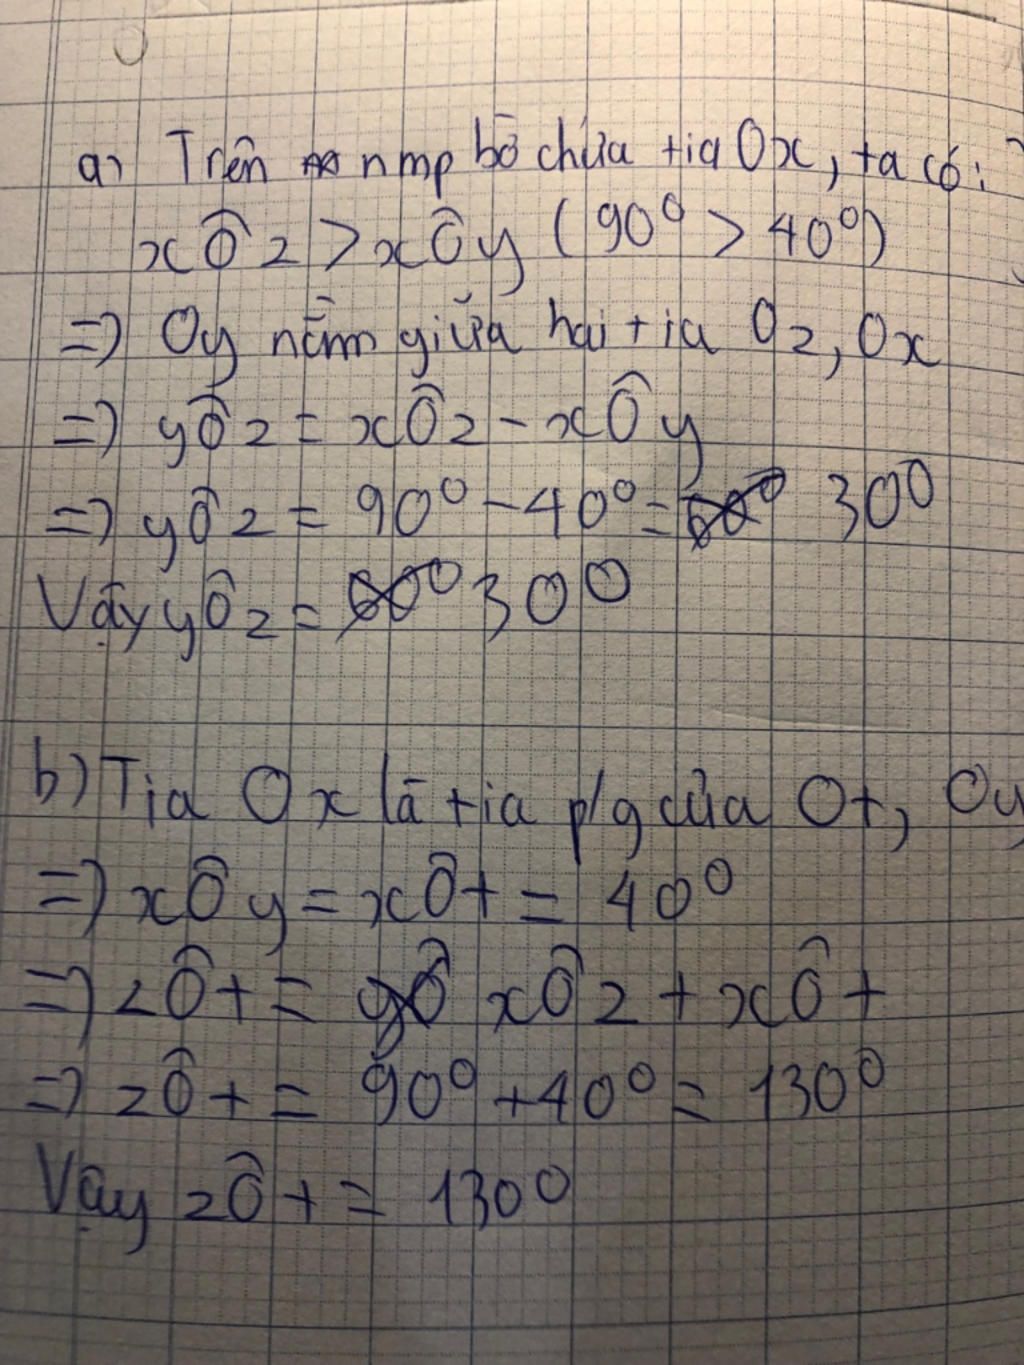 a) Trên nmp bờ chứa tia Ox, ta có:
xÔz > xÔy (90⁰ > 40⁰)
=) Oy nằm giữa hai tia Oz, Ox
=) yÔz = xÔz - xÔy
=) yÔz = 90⁰ - 40⁰ = 30⁰
Vậy yÔz = 30⁰
b) Tia Ox là tia p/g của Ot, Oy
=) xÔy = xÔt = 40⁰
=) zÔt = xÔz + xÔt
=) zÔt = 90⁰ + 40⁰ = 130⁰
Vậy zÔt = 130⁰